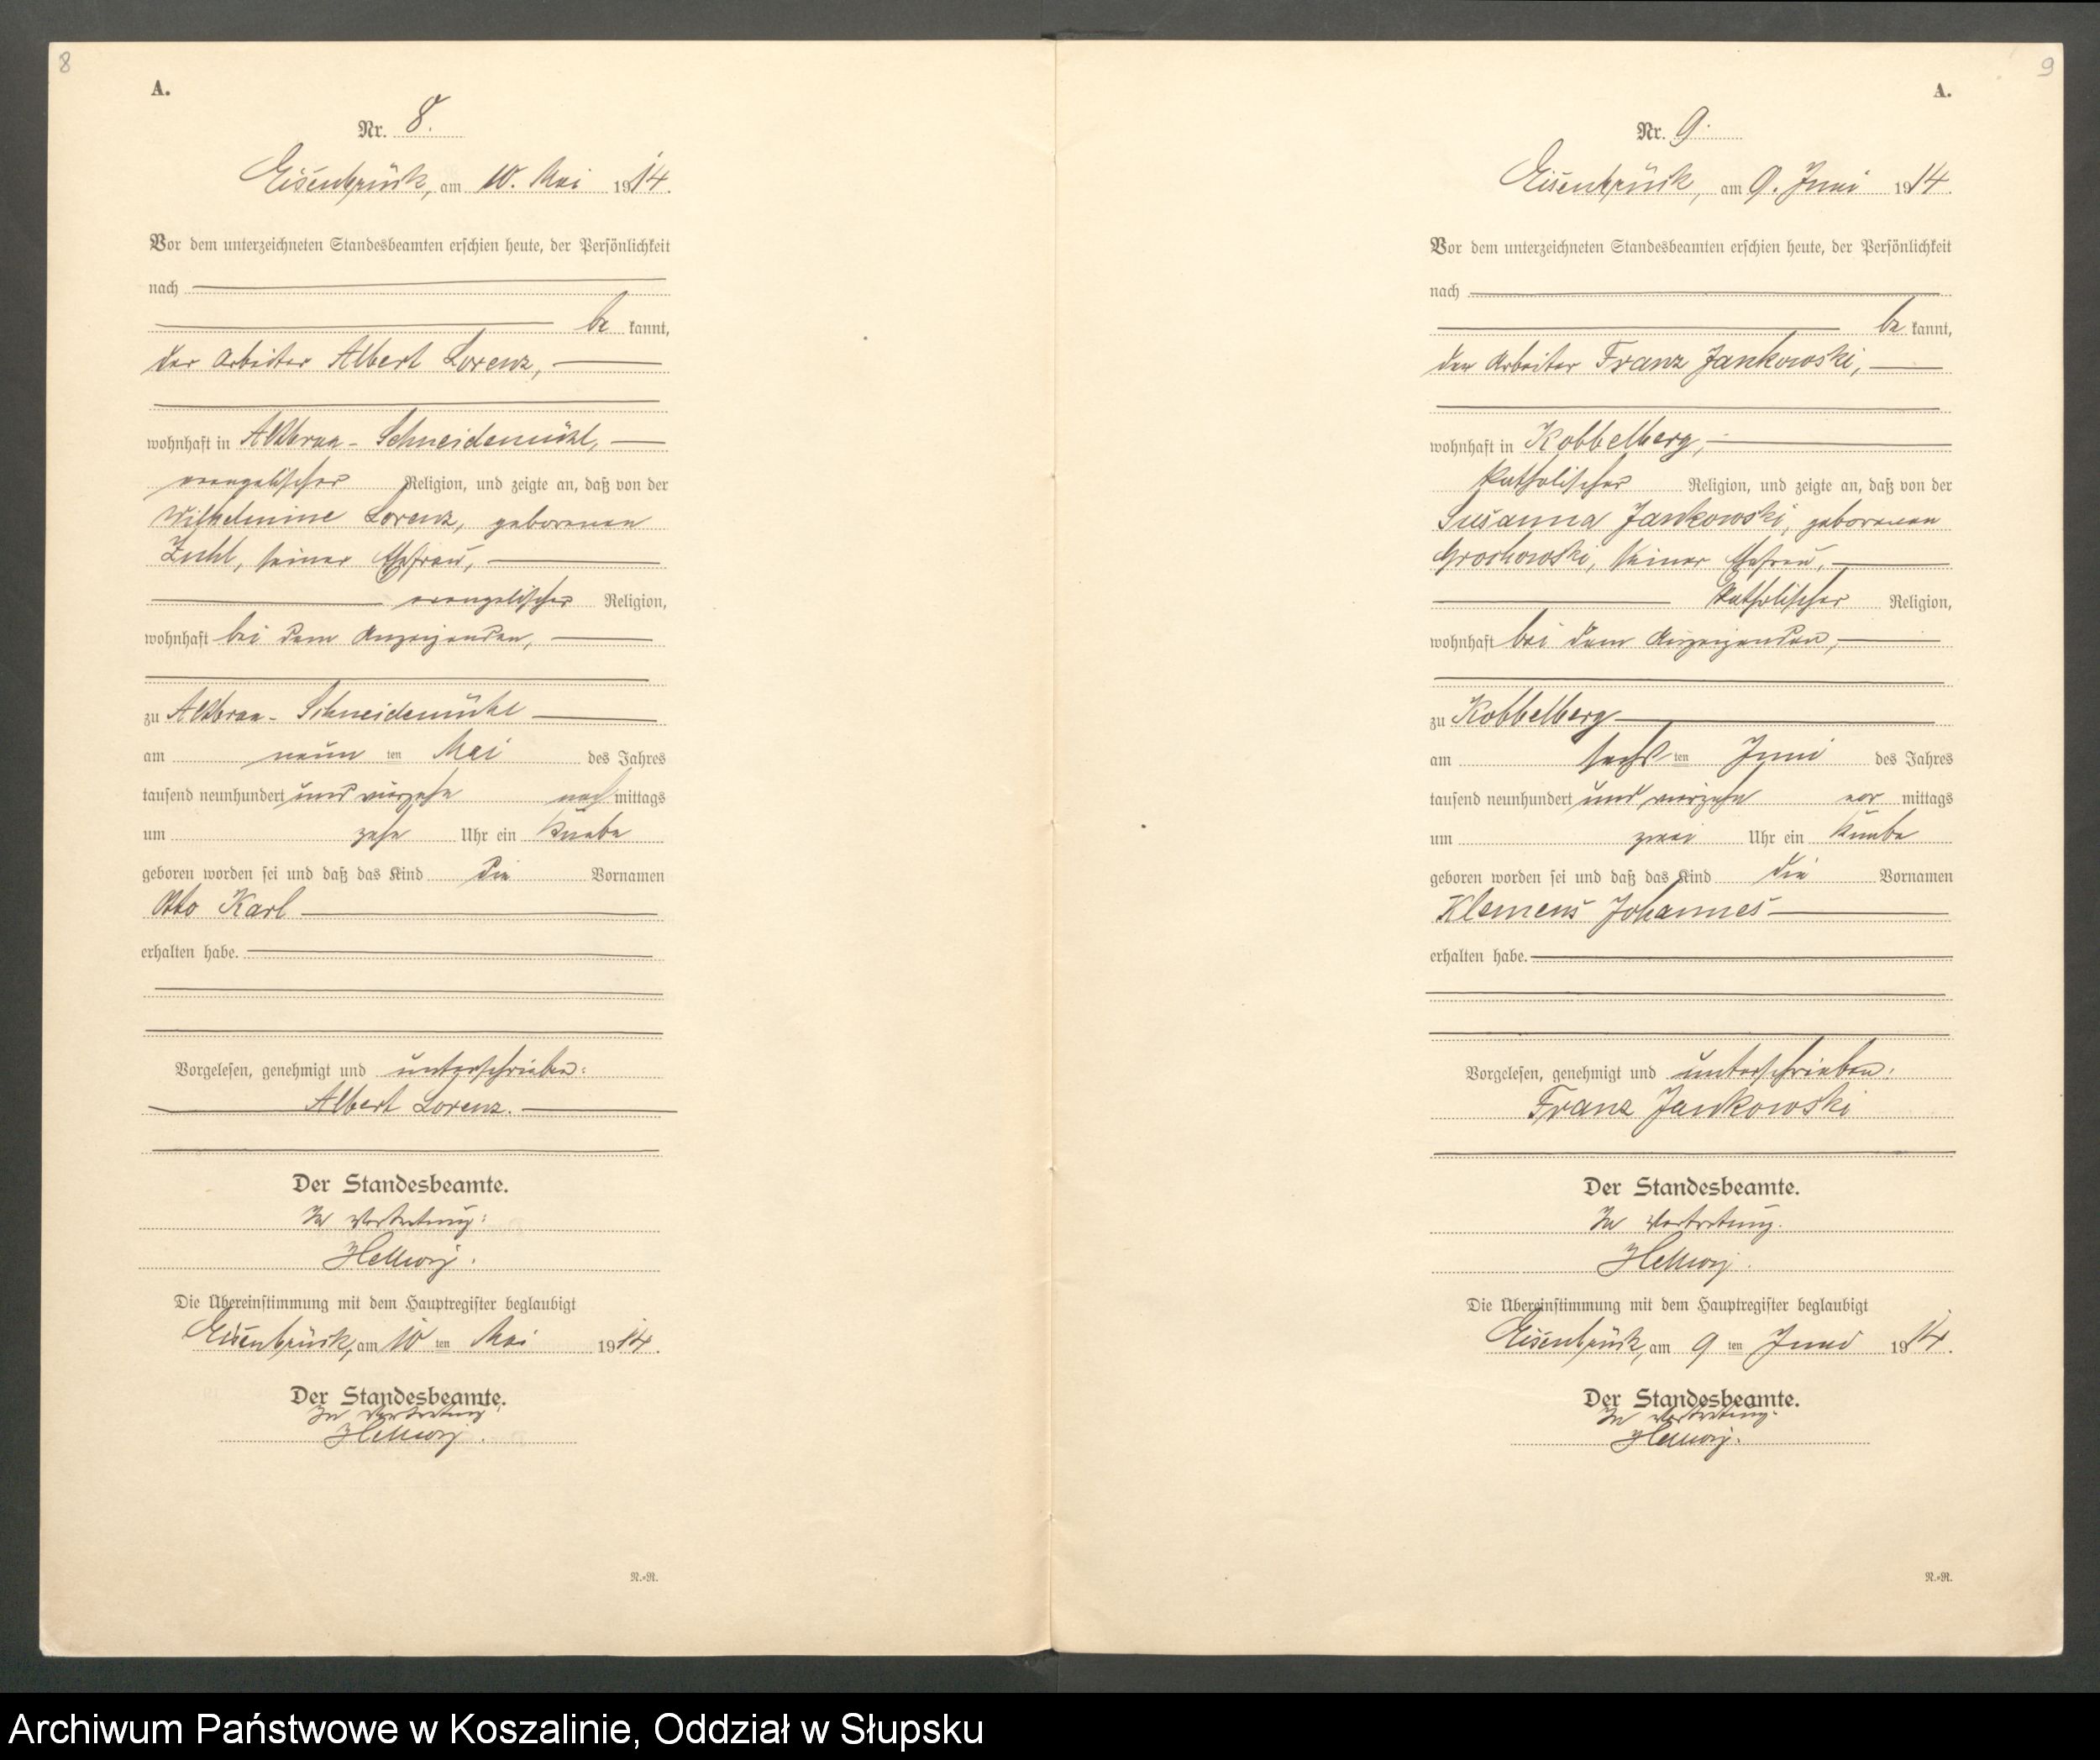 8
A.
Nr. 8.
Eisenbrück, am 10. Mai 1914.
Vor dem unterzeichneten Standesbeamten erschien heute, der Persönlichkeit
nach
be kannt,
der Arbeiter Albert Lorenz,
wohnhaft in Altbraa-Schneidemühl,
evangelischer Religion, und zeigte an, daß von der
Wilhelmine Lorenz, geborenen
Zuhl, seiner Ehefrau,
evangelischer Religion,
wohnhaft bei dem Anzeigenden,
zu Altbraa-Schneidemühl
am neun ten Mai des Jahres
tausend neunhundert und vierzehn nach mittags
um zehn Uhr ein Knabe
geboren worden sei und daß das Kind die Vornamen
Otto Karl
erhalten habe.
Vorgelesen, genehmigt und unterschrieben:
Albert Lorenz.
Der Standesbeamte.
In Vertretung:
Hellwig.
Die Übereinstimmung mit dem Hauptregister beglaubigt
Eisenbrück, am 10 ten Mai 1914.
Der Standesbeamte.
In Vertretung
Hellwig.
N.-N.
9
A.
Nr. 9.
Eisenbrück, am 9. Juni 1914.
Vor dem unterzeichneten Standesbeamten erschien heute, der Persönlichkeit
nach
be kannt,
der Arbeiter Franz Jankowski,
wohnhaft in Kobbelberg,
katholischer Religion, und zeigte an, daß von der
Susanna Jankowski, geborenen
Grochowski, seiner Ehefrau,
katholischer Religion,
wohnhaft bei dem Anzeigenden,
zu Kobbelberg
am sechs ten Juni des Jahres
tausend neunhundert und vierzehn vor mittags
um zwei Uhr ein Knabe
geboren worden sei und daß das Kind die Vornamen
Klemens Johannes
erhalten habe.
Vorgelesen, genehmigt und unterschrieben:
Franz Jankowski
Der Standesbeamte.
In Vertretung.
Hellwig.
Die Übereinstimmung mit dem Hauptregister beglaubigt
Eisenbrück, am 9 ten Juni 1914.
Der Standesbeamte.
In Vertretung.
Hellwig.
N.-N.
Archiwum Państwowe w Koszalinie, Oddział w Słupsku